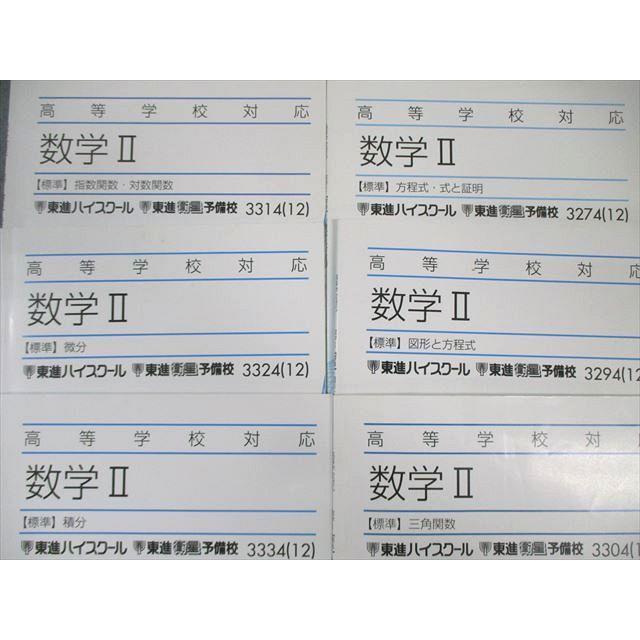 高等学校対応
数学Ⅱ
【標準】指数関数・対数関数
東進ハイスクール 東進衛星予備校 3314(12)
高等学校対応
数学Ⅱ
【標準】方程式・式と証明
東進ハイスクール 東進衛星予備校 3274(12)
高等学校対応
数学Ⅱ
【標準】微分
東進ハイスクール 東進衛星予備校 3324(12)
高等学校対応
数学Ⅱ
【標準】図形と方程式
東進ハイスクール 東進衛星予備校 3294(12
高等学校対応
数学Ⅱ
【標準】積分
東進ハイスクール 東進衛星予備校 3334(12)
高等学校対
数学Ⅱ
【標準】三角関数
東進ハイスクール 東進衛星予備校 3304(1